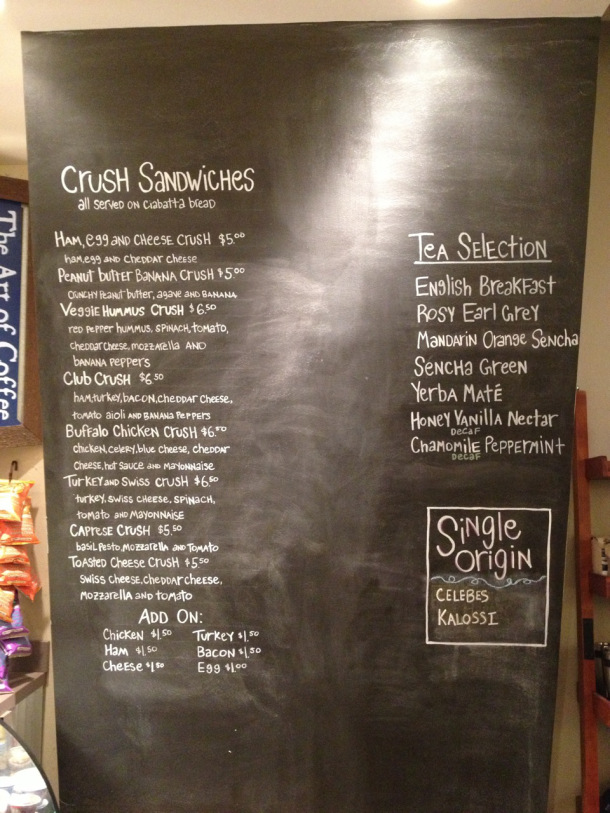 The Art of Coffee
Crush Sandwiches
all served on ciabatta bread
Ham, egg and cheese crush $5.00
ham, egg and cheddar cheese
Peanut butter Banana Crush $5.00
crunchy peanut butter, agave and banana
Veggie Hummus Crush $6.50
red pepper hummus, spinach, tomato,
cheddar cheese, mozzarella and
banana peppers
Club Crush $6.50
ham, turkey, bacon, cheddar cheese,
tomato aioli and banana peppers
Buffalo Chicken Crush $6.50
chicken, celery, blue cheese, cheddar
cheese, hot sauce and mayonnaise
Turkey and Swiss Crush $6.50
turkey, swiss cheese, spinach,
tomato and mayonnaise
Caprese Crush $5.50
basil pesto, mozzarella and tomato
Toasted Cheese Crush $5.50
swiss cheese, cheddar cheese,
mozzarella and tomato
Add On:
Chicken $1.50 Turkey $1.50
Ham $1.50 Bacon $1.50
Cheese $1.50 Egg $1.00
Tea Selection
English Breakfast
Rosy Earl Grey
Mandarin Orange Sencha
Sencha Green
Yerba Maté
Honey Vanilla Nectar
decaf
Chamomile Peppermint
decaf
Single
Origin
Celebes
Kalossi